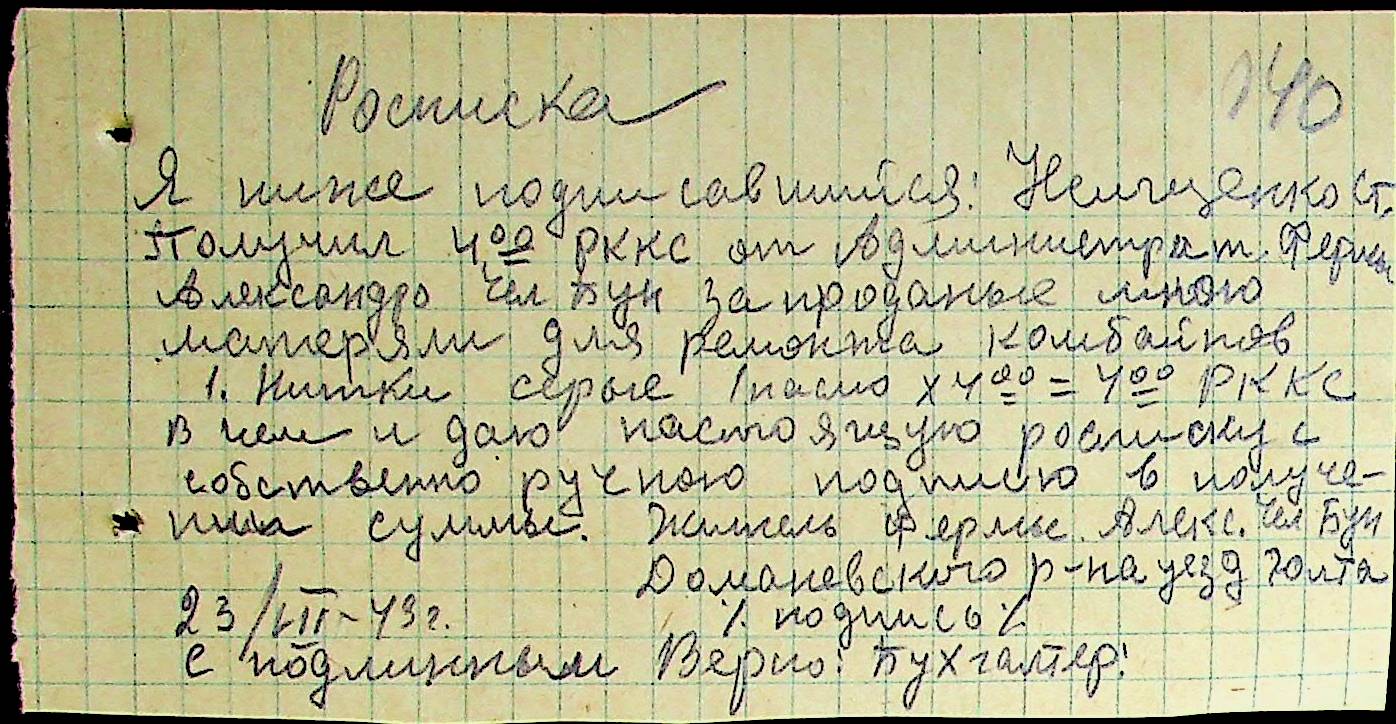 Росписка
140
Я ниже подписавшийся: Нельщенко Ст.
Получил 4,00 РККС от Администрат. Фермы
Александро Чел Бун за проданые мною
матеряли для ремонта комбайнов
1. Нитки серые 1 пасмо х 4 00 = 4 00 РККС
В чем и даю настоящую росписку с
собственно ручною подписю в получе-
нии суммы. Житель Фермы Алекс. Чел Бун
Доманевского р-на уезд Голта
23/VII-43г. /. подпись /.
С подлинным Верно: Бухгалтер: